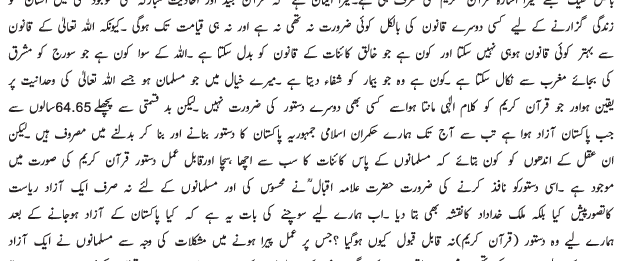 زندگی گزارنے کے لیے کسی دوسرے قانون کی بالکل کوئی ضرورت نہ تھی نہ ہے اور نہ ہی قیامت تک ہوگی ۔کیونکہ اللہ تعالیٰ کے قانون
سے بہتر کوئی قانون ہوہی نہیں سکتا اور کون ہے جو خالق کائنات کے قانون کو بدل سکتا ہے ۔اللہ کے سوا کون ہے جو سورج کو مشرق
کی بجائے مغرب سے نکال سکتا ہے ۔کون ہے وہ جو بیمار کو شفاء دیتا ہے ۔میرے خیال میں جو مسلمان ہو جسے اللہ تعالیٰ کی وحدانیت پر
یقین ہواور جو قرآن کریم کو کلام الٰہی مانتا ہواسے کسی بھی دوسرے دستور کی ضرورت نہیں ۔لیکن بد قسمتی سے پچھلے 64.65سالوں سے
جب پاکستان آزاد ہوا ہے تب سے آج تک ہمارے حکمران اسلامی جمہوریہ پاکستان کا دستور بنانے اور بنا کر بدلنے میں مصروف ہیں ۔لیکن
ان عقل کے اندھوں کو کون بتائے کہ مسلمانوں کے پاس کائنات کا سب سے اچھا ،سچا اورقابل عمل دستور قرآن کریم کی صورت میں
موجود ہے ۔اسی دستورکو نافذ کرنے کی ضرورت حضرت علامہ اقبال ؒنے محسوس کی اور مسلمانوں کے لئے نہ صرف ایک آزاد ریاست
کاتصورپیش کیا بلکہ ملک خداداد کانقشہ بھی بتا دیا ۔اب ہمارے لیے سوچنے کی بات یہ ہے کہ کیا پاکستان کے آزاد ہوجانے کے بعد
ہمارے لیے وہ دستور (قرآن کریم)نہ قابل قبول کیوں ہوگیا ؟جس پر عمل پیرا ہونے میں مشکلات کی وجہ سے مسلمانوں نے ایک آزاد